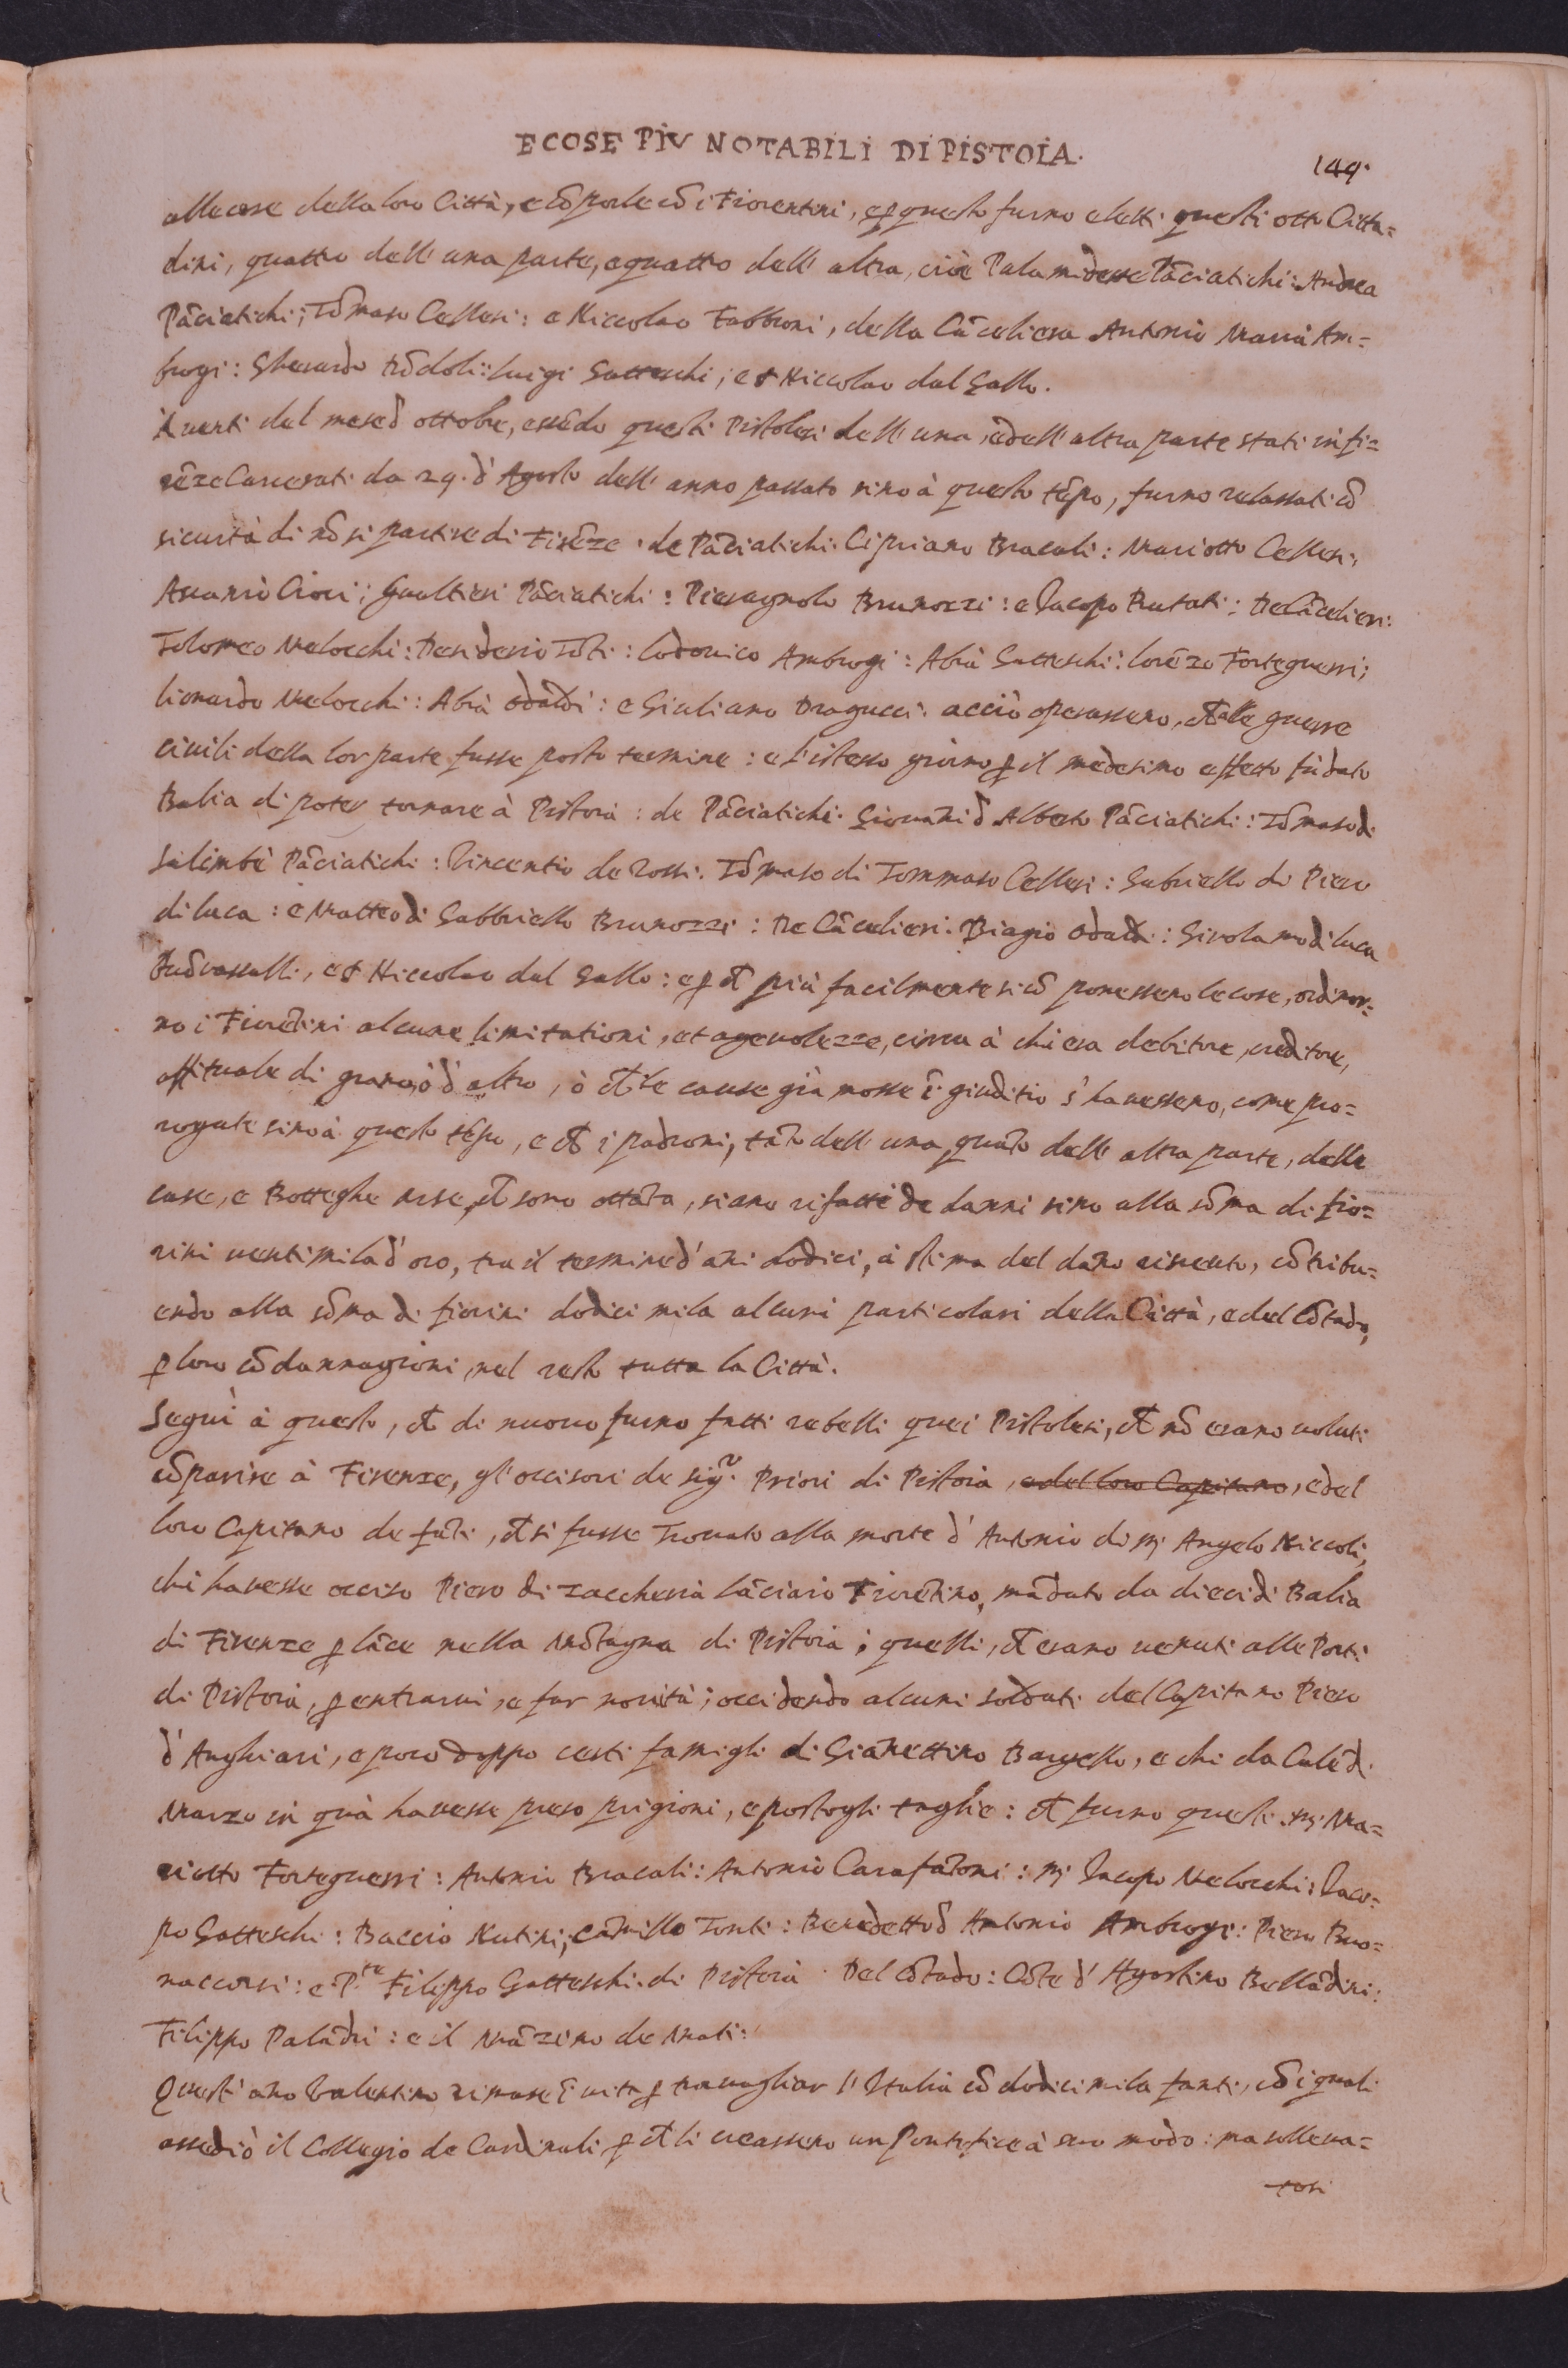 E COSE PIV NOTABILI DI PISTOIA.
149.
alle cose della loro Città, e cõporle cõ i Fiorentini, e ꝑ questo furno eletti questi otto Citta=
dini, quattro dell' una parte, e quatto dell' altra, cioè Palamidesse Pãciatichi: Andrea
Pãciatichi; Tõmaso Cellesi: e Niccolao Fabbroni, della Cãceliera Antonio Maria Am=
brogi: Gherardo Rõdoli: Luigi Gatteschi; et Niccolao dal Gallo.
A venti del mese d̃ ottobre, essẽdo questi Pistolesi dell' una, e dell' altra parte stati in fi=
rẽze Carcerati da 29. d' Agosto dell' anno passato sino à questo tẽpo, furno relassati cõ
sicurtà di nõ si partire di Firẽze. de Pãciatichi. Cipriano Bracali: Mariotto Cellesi;
Ascanio Cioci; Gualtieri Pãciatichi: Pieragnolo Brunozzi: e Iacopo Rutati: De Cãcelieri:
Tolomeo Melocchi: Desiderio Tõti: Lodovico Ambrogi: Abrà Gatteschi: Lorẽzo Forteguerri;
Lionardo Melocchi: Abrà Odaldi: e Giuliano Dragucci. acciò operasseno, ch̃ alle guerre
civili della lor parte fusse posto termine: e l' istesso giorno ꝑ il medesimo effetto fù dato
Balia di poter tornare à Pistoia: de Pãciatichi. Giovañi d̃ Alberto Pãciatichi: Tõmaso di
Salimbẽ Pãciatichi: Vincentio de Rossi. Tõmaso di Tommaso Cellesi: Gabriello di Piero
di luca: e Matteo di Gabbriello Brunozzi: De Cãcelieri. Biagio Odaldi: Girolamo di luca
Buõvassalli, et Niccolao dal Gallo: e ꝑ ch̃ più facilmente si cõ ponesseno le cose, ordinor=
no i Fiorẽtini alcune limitationi, et agevolezze, circa à chi era debitore, creditore,
affituale di grano, ò d' altro, ò ch̃ le cause già mosse ĩ giuditio s' havesseno, come pro=
rogate sino à questo tẽpo, e ch̃ i padroni, tãto dell' una, quãto dell' altra parte, delle
case, e Botteghe arse, ch̃ sono ottãta, siano rifatti de danni sino alla sõma di fio=
rini ventimila d' oro, tra il termine d' añi dodici, à stima del dãno ricevuto, cõtribu=
endo alla sõma di fiorini dodici mila alcuni particolari della Città, e del Cõtado,
ꝑ loro cõdannagioni, nel resto tutta la Città.
Seguì à questo, ch̃ di nuovo furno fatti rebelli quei Pistolesi, ch̃ nõ erano voluti
cõparire à Firenze, gl' occisori de sigʳⁱ. Priori di Pistoia, e del loro Capitano, e del
loro Capitano de fãti, ch̃ si fusse Trovato alla morte d' Antonio di mˢ Angelo Niccoli,
chi havesse occiso Piero di Zaccheria Lãciaio Fiorẽtino, mãdato da dieci di Balia
di Firenze ꝑ lãce nella Mõtagna di Pistoia; quelli, ch̃ erano venuti alle Porti
di Pistoia, ꝑ entrarvi, e far novità; occidendo alcuni soldati del Capitano Piero
d' Anghiari, e poco doppo certi famigli di Giañettino Bargello, e chi da Calẽ di
Marzo in quà havesse preso prigioni, e postogli taglie: ch̃ furno questi. mˢ Ma=
riotto Forteguerri: Antonio Bracali: Antonio Carafãtoni: mˢ Iacopo Melocchi: Iaco=
po Gatteschi: Baccio Nutini; Camillo Tonti: Benedetto d̃ Antonio Ambrogi: Piero Buo=
naccorsi: e Pʳᵉ Filippo Gatteschi. di Pistoia. Del Cõtado: Cõte d' Agostino Bellãdini:
Filippo Palãdri: e il Mãzino de Mati:
Quest' año Valentino rimase ĩ vita ꝑ travagliar l' Italia cõ dodici mila fanti, cõ i quali
assediò il Collegio de Cardinali ꝑ ch̃ li creasseno un Pontefice à suo modo: ma solleva=
tosi